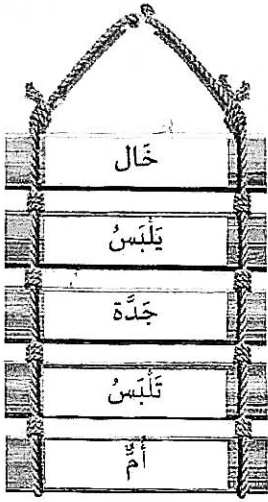 خَال
يَلْبَسُ
جَدَّة
تَلْبَسُ
أُمٌّ